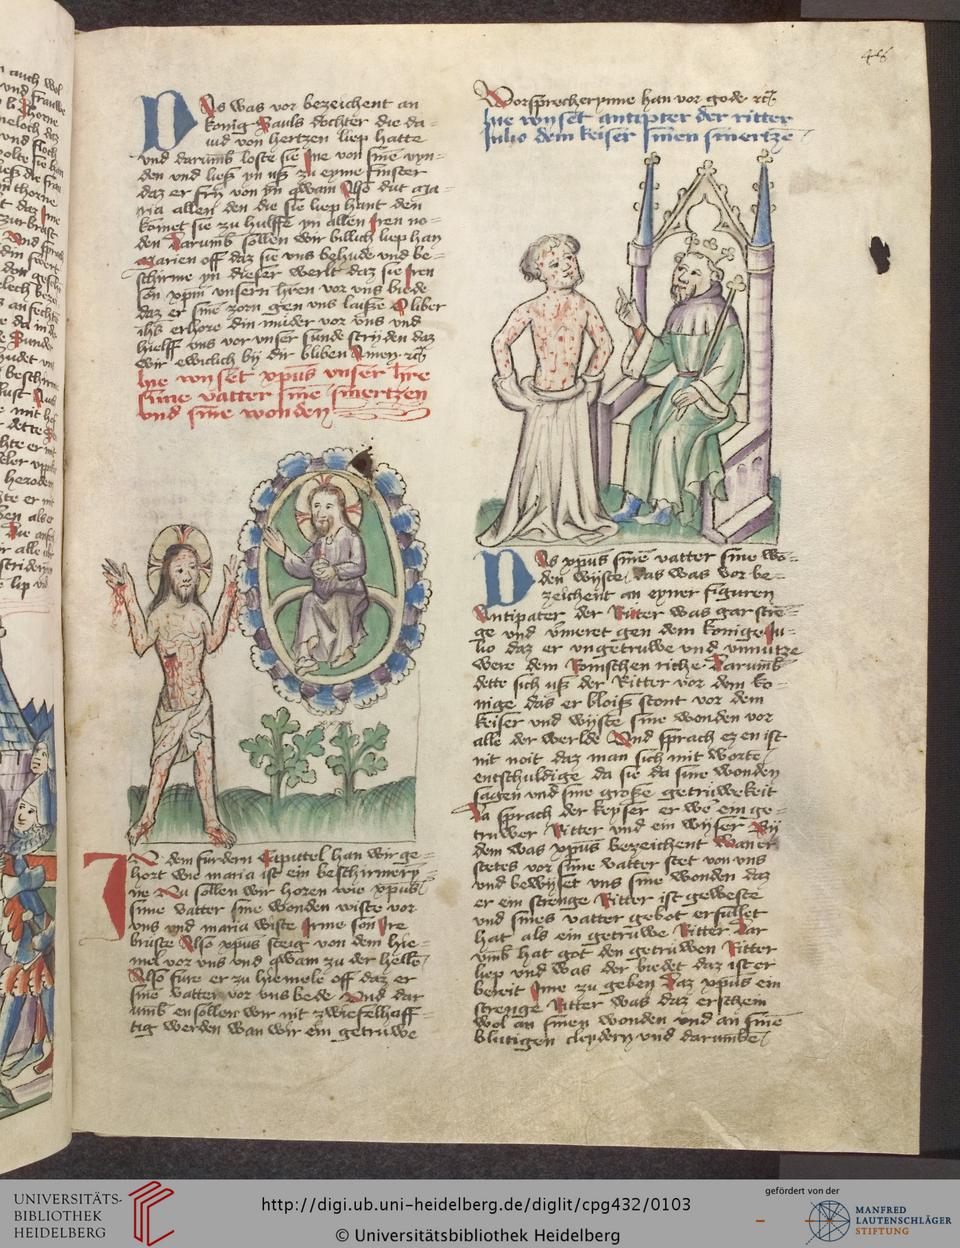 Das was vor bezeichent an
konig Sauls dochter die da-
uid von hertzen liep hatte
und darumb loste sie Ine von sine vyn-
den und ließ yn uß zu eyme finster
daz er fry von yn qwam Also dut ma-
ria allen den die sie liep hant den
komet sie zu hulffe yn allen Iren no-
den Darumb sollen wir billich liep han
Marien off daz sie uns behude und be-
schirme yn dieser werlt daz sie Iren
son xpm unsern hren vor uns biede
daz er sine zorn gen uns lasse O liber
ihs erhore din muder vor uns und
hielff uns vor unser sunde strijden daz
wir ewiclich by dir bliben Amen rc
hie wyset xpus unser hre
sime vatter sine smertzen
und sine wonden
In dem furdern Capittel han wir ge-
hort wie maria ist ein beschirmery-
ne Nu sollen wir horen wie xpus
sime vatter sine wonden wiste vor
uns und maria wiste Irme son Ire
bruste Also xpus steig von dem hie-
mel vor uns und qwam zu der helle
Also fure er zu hiemele off daz er
sine vatter vor uns bede Und dar
umb ensollen wir nit zwiefelhaff-
tig werden wan wir ein getruwe
46
Vorsprecherynne han vor gode rc
hie wyset antipter der ritter
Julio dem keiser sinen smertze
Das xpus sime vatter sine wo-
den wyste das was vor be-
zeichent an eyner figuren
Antipater der Ritter was gar stre-
ge und vmeret gen dem konige Ju-
lio daz er ungetruwe und unnutze
were dem Romschen riche Darumb
dette sich uß der Ritter vor dem ko-
nige das er bloiß stont vor dem
keiser und wyste sine wonden vor
alle der werlde Und sprach ez en ist
nit noit daz man sich mit worte
entschuldige da sie da sine wonden
sagen und sine große getruwekeit
Da sprach der keyser er we ein ge-
truwer Ritter und ein wyser By
dem was xpus bezeichent Wan er
stetes vor sime vatter stet von uns
und bewyset uns sine wonden daz
er ein strenge Ritter ist geweste
und sines vatter gebot erfullet
hat als ein getruwe Ritter Dar
umb hat got den getruwen Ritter
liep und was der biedet daz ist er
bereit Ime zu geben Daz xpus ein
strenge Ritter was daz erschein
wol an sinen wonden und an sine
blutigen cleydern und darumbe
UNIVERSITÄTS-
BIBLIOTHEK
HEIDELBERG
http://digi.ub.uni-heidelberg.de/diglit/cpg432/0103
© Universitätsbibliothek Heidelberg
gefördert von der
MANFRED
LAUTENSCHLÄGER
STIFTUNG